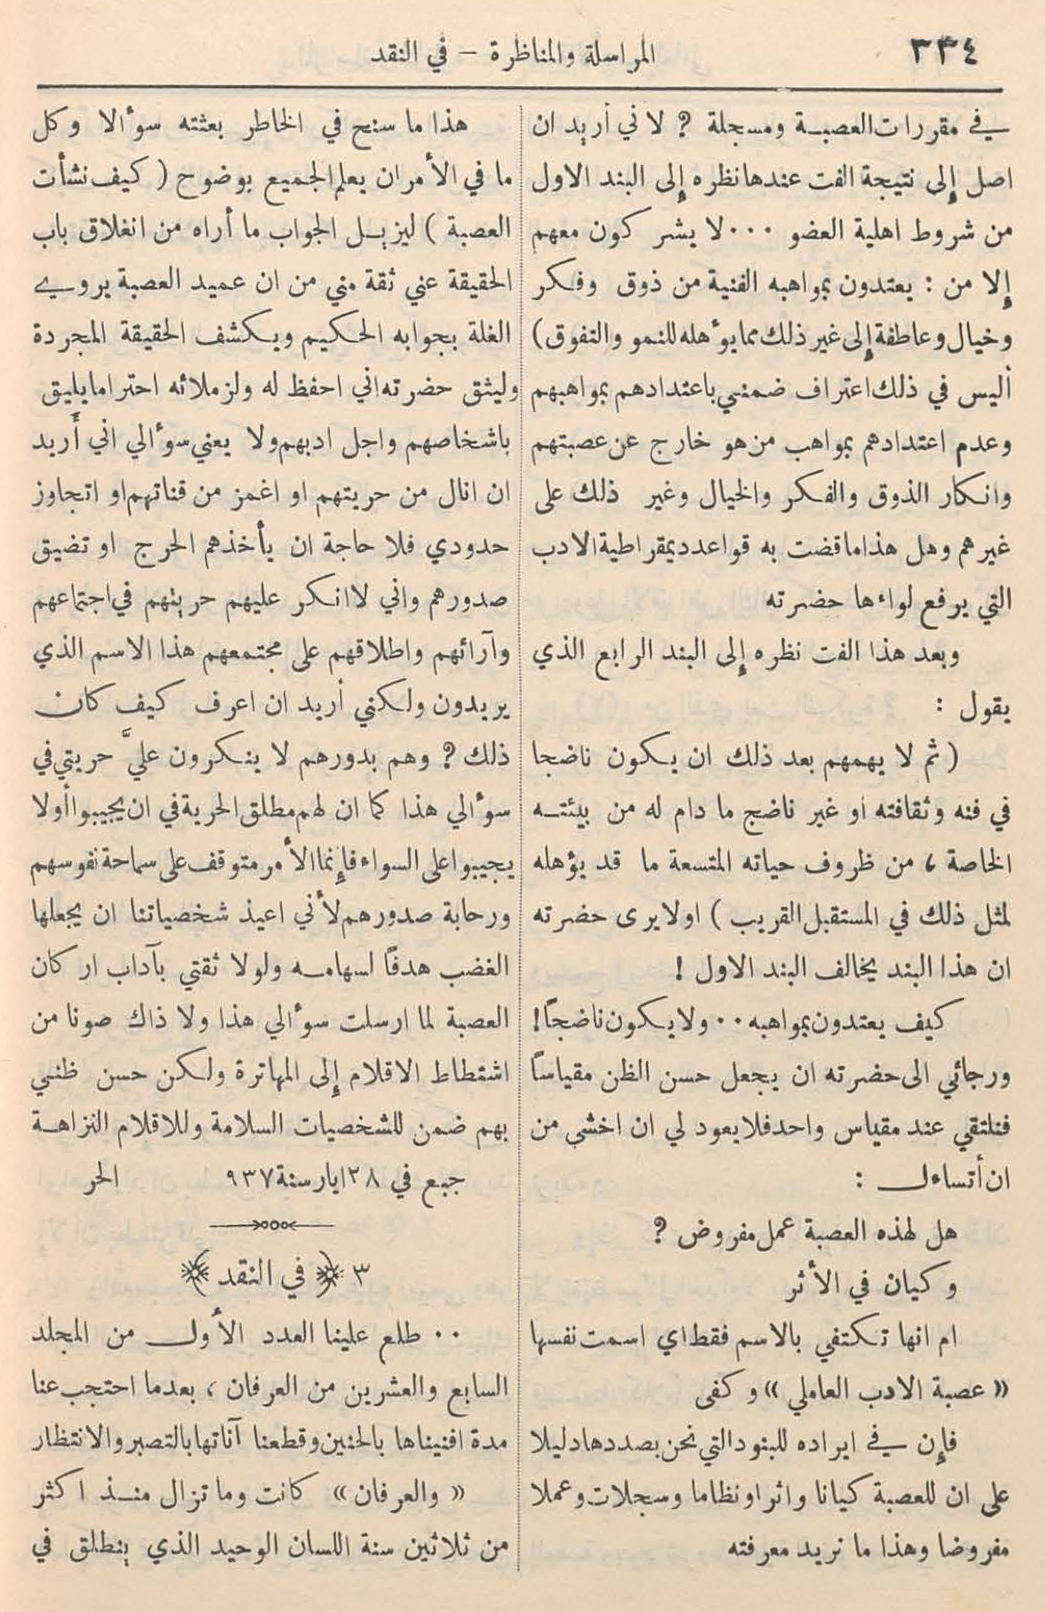 ٣٣٤
المراسلة والمناظرة — في النقد
في مقررات العصبة ومسجلة ? لاني أريد ان
اصل إلى نتيجة الفت عندها نظره إلى البند الاول
من شروط اهلية العضو ٠٠٠ لا يشركون معهم
إلا من : يعتدون بمواهبه الفنية من ذوق وفكر
وخيال وعاطفة إلى غير ذلك مما يوٴهله للنمو والتفوق)
أليس في ذلك اعتراف ضمني باعتدادهم بمواهبهم
وعدم اعتدادهم بمواهب من هو خارج عن عصبتهم
وانكار الذوق والفكر والخيال وغير ذلك على
غيرهم وهل هذا ما قضت به قواعد ديمقراطية الادب
التي يرفع لواءها حضرته
وبعد هذا الفت نظره إلى البند الرابع الذي
يقول :
( ثم لا يهمهم بعد ذلك ان يكون ناضجا
في فنه وثقافته او غير ناضج ما دام له من بيئته
الخاصة ، من ظروف حياته المتسعة ما قد يؤهله
لمثل ذلك في المستقبل القريب ) اولا يرى حضرته
ان هذا البند يخالف البند الاول !
كيف يعتدون بمواهبه ٠٠ ولا يكون ناضجاً!
ورجائي الى حضرته ان يجعل حسن الظن مقياساً
فنلتقي عند مقياس واحد فلا يعود لي ان اخشى من
ان أتساءل :
هل لهذه العصبة عمل مفروض ?
وكيان في الأثر
ام انها تكتفي بالاسم فقط اي اسمت نفسها
« عصبة الادب العاملي » وكفى
فإن في ايراده للبنود التي نحن بصددها دليلا
على ان للعصبة كيانا واثرا ونظاما وسجلات وعملا
مفروضا وهذا ما نريد معرفته
هذا ما سنح في الخاطر بعثته سوٴالا وكل
ما في الأمر ان يعلم الجميع بوضوح ( كيف نشأت
العصبة ) ليزيل الجواب ما أراه من انغلاق باب
الحقيقة عني ثقة مني من ان عميد العصبة يروي
الغلة بجوابه الحكيم ويكشف الحقيقة المجردة
وليثق حضرته اني احفظ له ولزملائه احتراما يليق
باشخاصهم واجل ادبهم ولا يعني سوٴالي اني أريد
ان انال من حريتهم او اغمز من قناتهم او اتجاوز
حدودي فلا حاجة ان يأخذهم الحرج او تضيق
صدورهم واني لا انكر عليهم حريتهم في اجتماعهم
وآرائهم واطلاقهم على مجتمعهم هذا الاسم الذي
يريدون ولكني أريد ان اعرف كيف كان
ذلك ? وهم بدورهم لا ينكرون عليَّ حريتي في
سوٴالي هذا كما ان لهم مطلق الحرية في ان يجيبوا أولا
يجيبوا على السواء فإنما الأمر متوقف على سماحة نفوسهم
ورحابة صدورهم لأني اعيذ شخصياتنا ان يجعلها
الغضب هدفاً لسهامه ولولا ثقتي بآداب اركان
العصبة لما ارسلت سوٴالي هذا ولا ذاك صونا من
اشتطاط الاقلام إلى المهاترة ولكن حسن ظني
بهم ضمن للشخصيات السلامة وللاقلام النزاهة
جبع في ٢٨ ايار سنة ٩٣٧ الحر
٣ ﴿ في النقد ﴾
٠٠ طلع علينا العدد الأول من المجلد
السابع والعشرين من العرفان ، بعدما احتجب عنا
مدة افنيناها بالحنين وقطعنا آناتها بالتصبر والانتظار
« والعرفان » كانت وما تزال منذ اكثر
من ثلاثين سنة اللسان الوحيد الذي ينطلق في